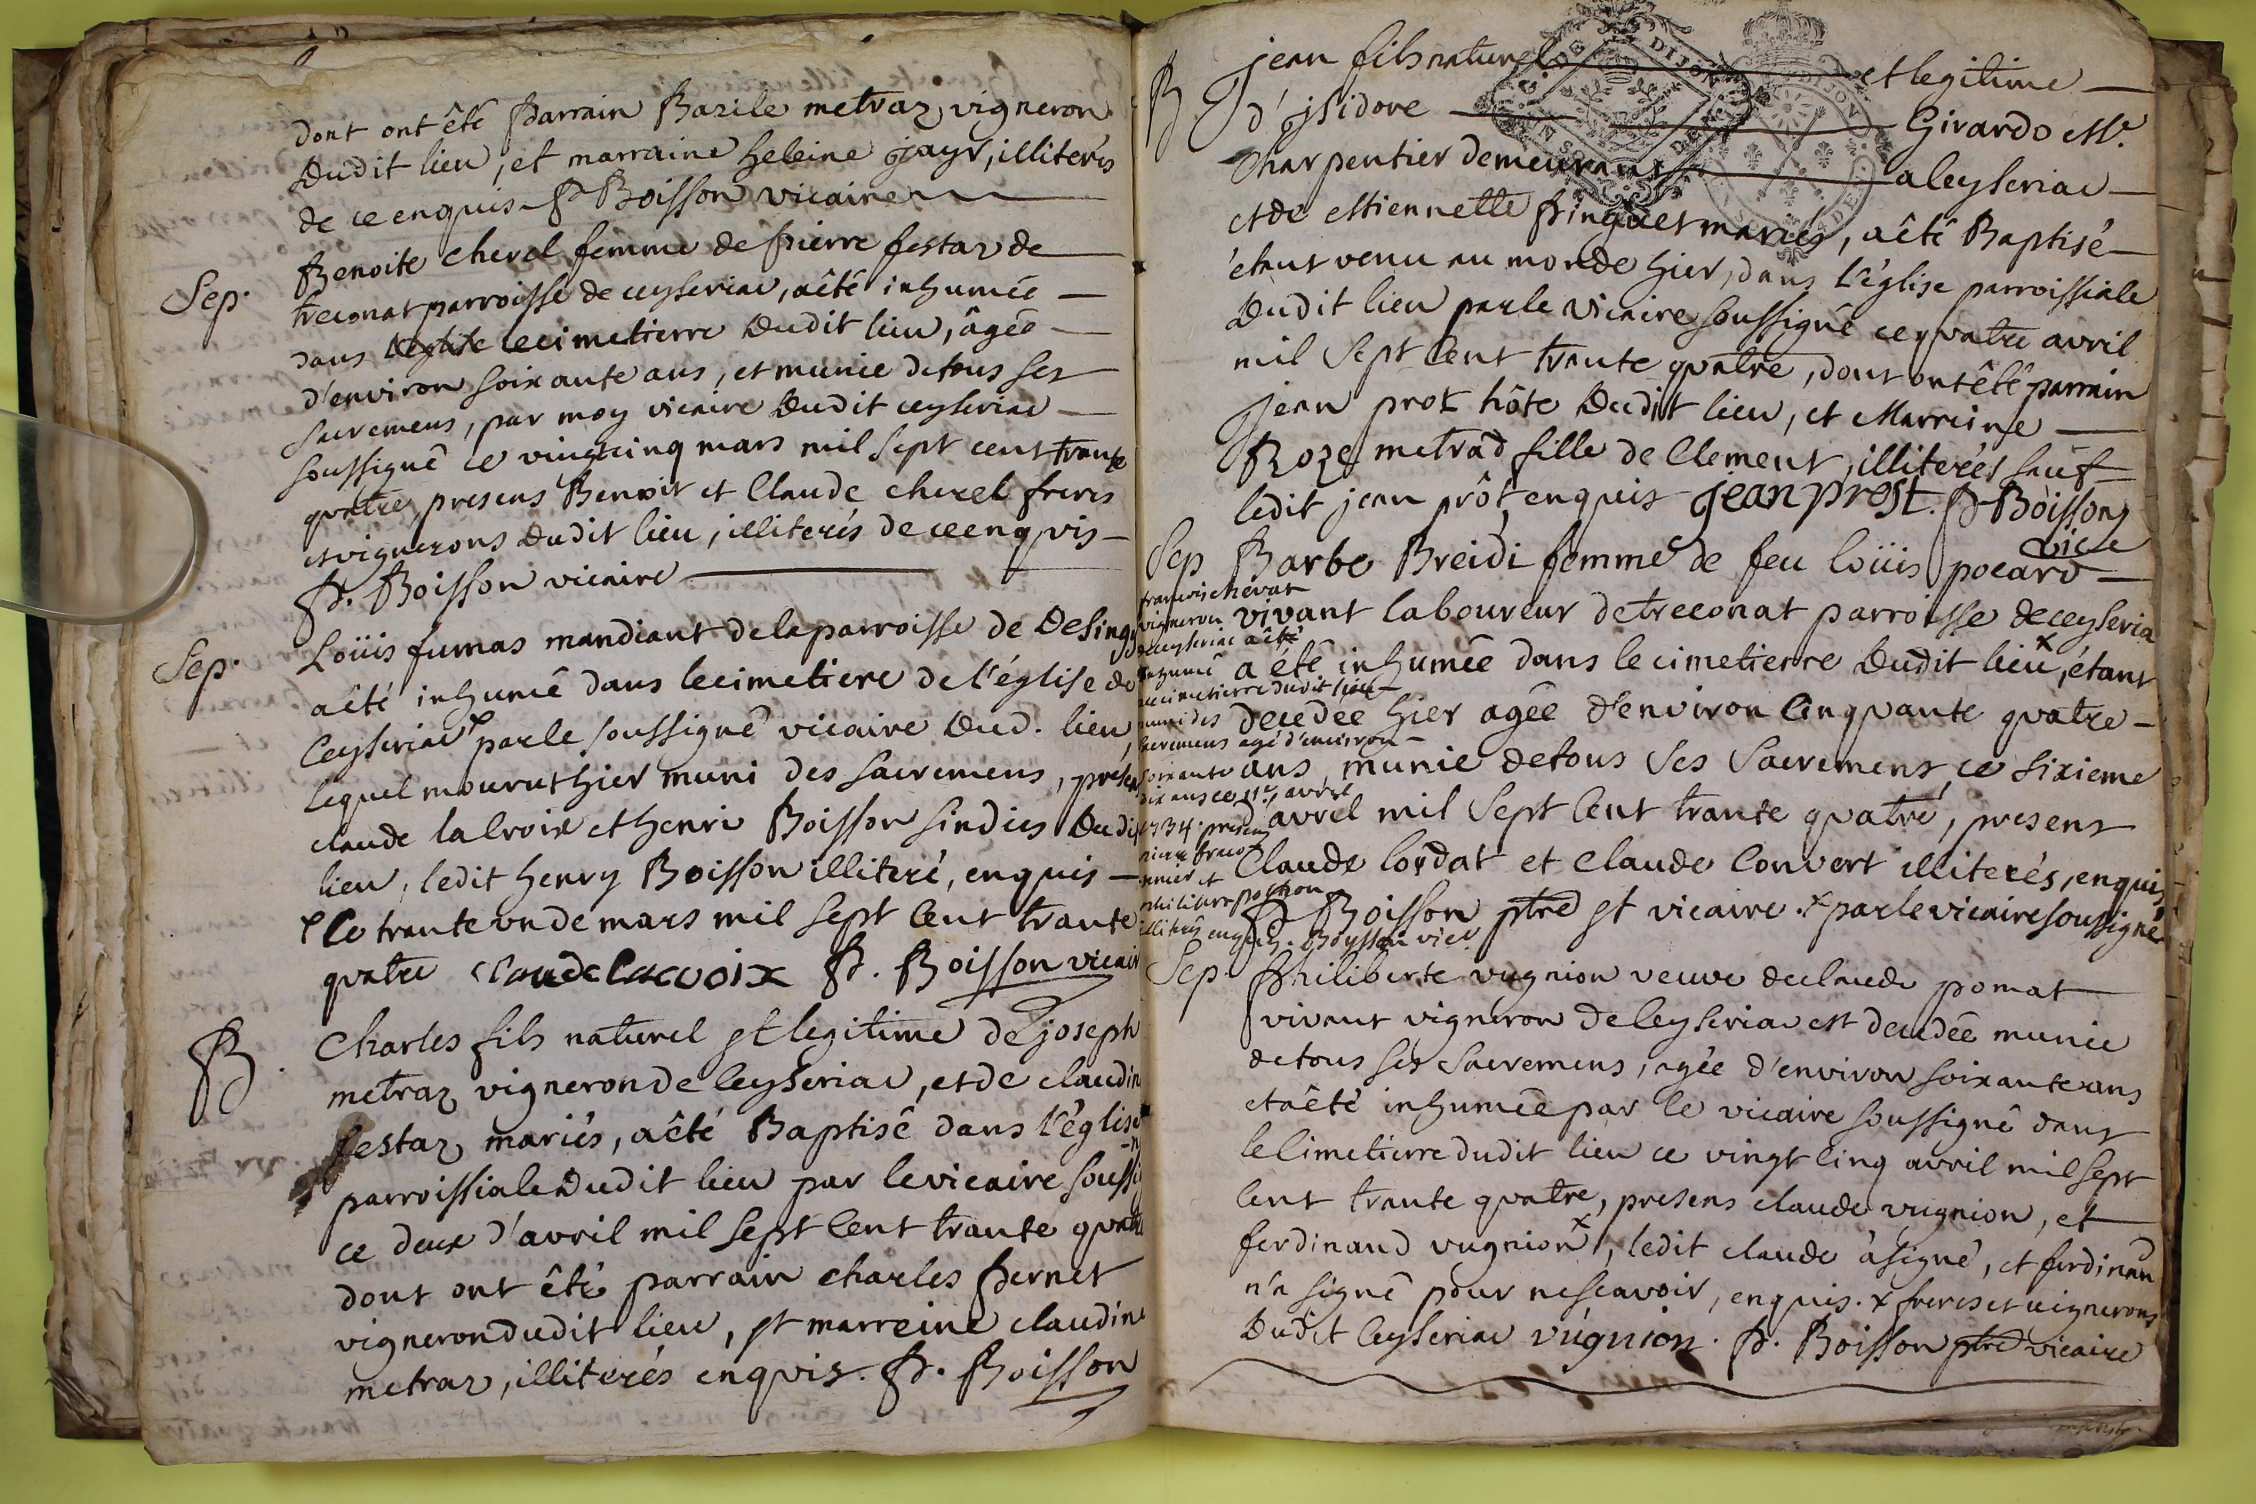 dont ont êté parrain Bazile metraz vigneron
Dudit lieu, et marraine heleine jayr, illiterés
de ce enquis P Boisson vicaire
Sep.
Benoite cherel femme de pierre festaz de
treconat parroisse de ceyseriac, aêté inhumée
dans l'eglise lecimetierre Dudit lieu, âgée
d'environ soixante ans, et munie detous ses
sacremens, par moy vicaire Dudit ceyseriac
soussigné ce vingtcinq mars mil sept cent trante
quatre, presens Benoit et Claude cherel freres
et vignerons Dudit lieu, illiterés de ce enquis
P. Boisson vicaire
Sep.
Loüis fumas mandiant delaparroisse de Desing
aêté inhumé dans lecimetiere de l'église de
Ceyseriac x parle soussigné vicaire Dud. lieu,
lequel mourut hier muni des sacremens, presens
claude lacroix et henri Boisson sindics Dudit
lieu, ledit henry Boisson illiteré, enquis
x Ce trante un de mars mil sept Cent trante
quatre claude lacroix P. Boisson vicair
B.
Charles fils naturel et legitime de joseph
metraz vigneron de Ceyseriac, et de claudin
festaz mariés, aêté Baptisé dans l'église
parroissiale Dudit lieu par levicaire soussi
ce deux d'avril mil sept Cent trante quatre
dont ont êté parrain charles pernet
vigneron dudit lieu, et marreine claudine
metraz, illiterés enquis. P. Boisson
B.
jean fils naturel et legitime
d'jsidore Girardo Me.
Charpentier demeurant aCeyseriac
et de Etiennette pringuet mariés, aêté Baptisé
êtant venu au monde hier, dans l'église parroissiale
Dudit lieu parle vicaire soussigné ce quatre avril
mil Sept Cent trante quatre, dont ont êté parrain
Jean prot hôte Dudit lieu, et Marreine
Roze metrad fille de Clement, illiterés sauf
ledit jean prôt enquis jean prost. P Boisson
vice
Sep
Barbe Breidi femme de feu loüis pocard
vivant laboureur detreconat parroisse deceyseria
a été inhumée dans lecimetierre Dudit lieu x, étant
decedée hier agée d'environ Cinquante quatre
ans, munie detous ses Sacremens, ce sixieme
d'avril mil Sept Cent trante quatre, presens
Claude Cordat et Claude Convert illiterés, enquis
P Boisson ptre et vicaire. x parlevicairesoussigné
francois chevat
vigneron
deceyseriac aêté
inhumé
aucimetierre dudit lieu
muni des
sacremens agé d'environ
soixante
dix ans ce 11e avril
1734. presens
et
philibert pochon
illiterés enquis. Boysson vice
Sep.
Philiberte vugnion veuve declaude pomat
vivant vigneron deCeyseriac est decedée munie
detous ses Sacremens, agée d'environ soixante ans
et aêté inhumée par le vicaire soussigné dans
leCimetierre dudit lieu ce vingt Cinq avril mil sept
Cent trante quatre, presens claude vugnion, et
ferdinand vugnion x, ledit claude a signé, et ferdinand
n'a signé pour nescavoir, enquis. x freres et vignerons
Dudit Ceyseriac vugnion. P. Boisson ptre vicaire